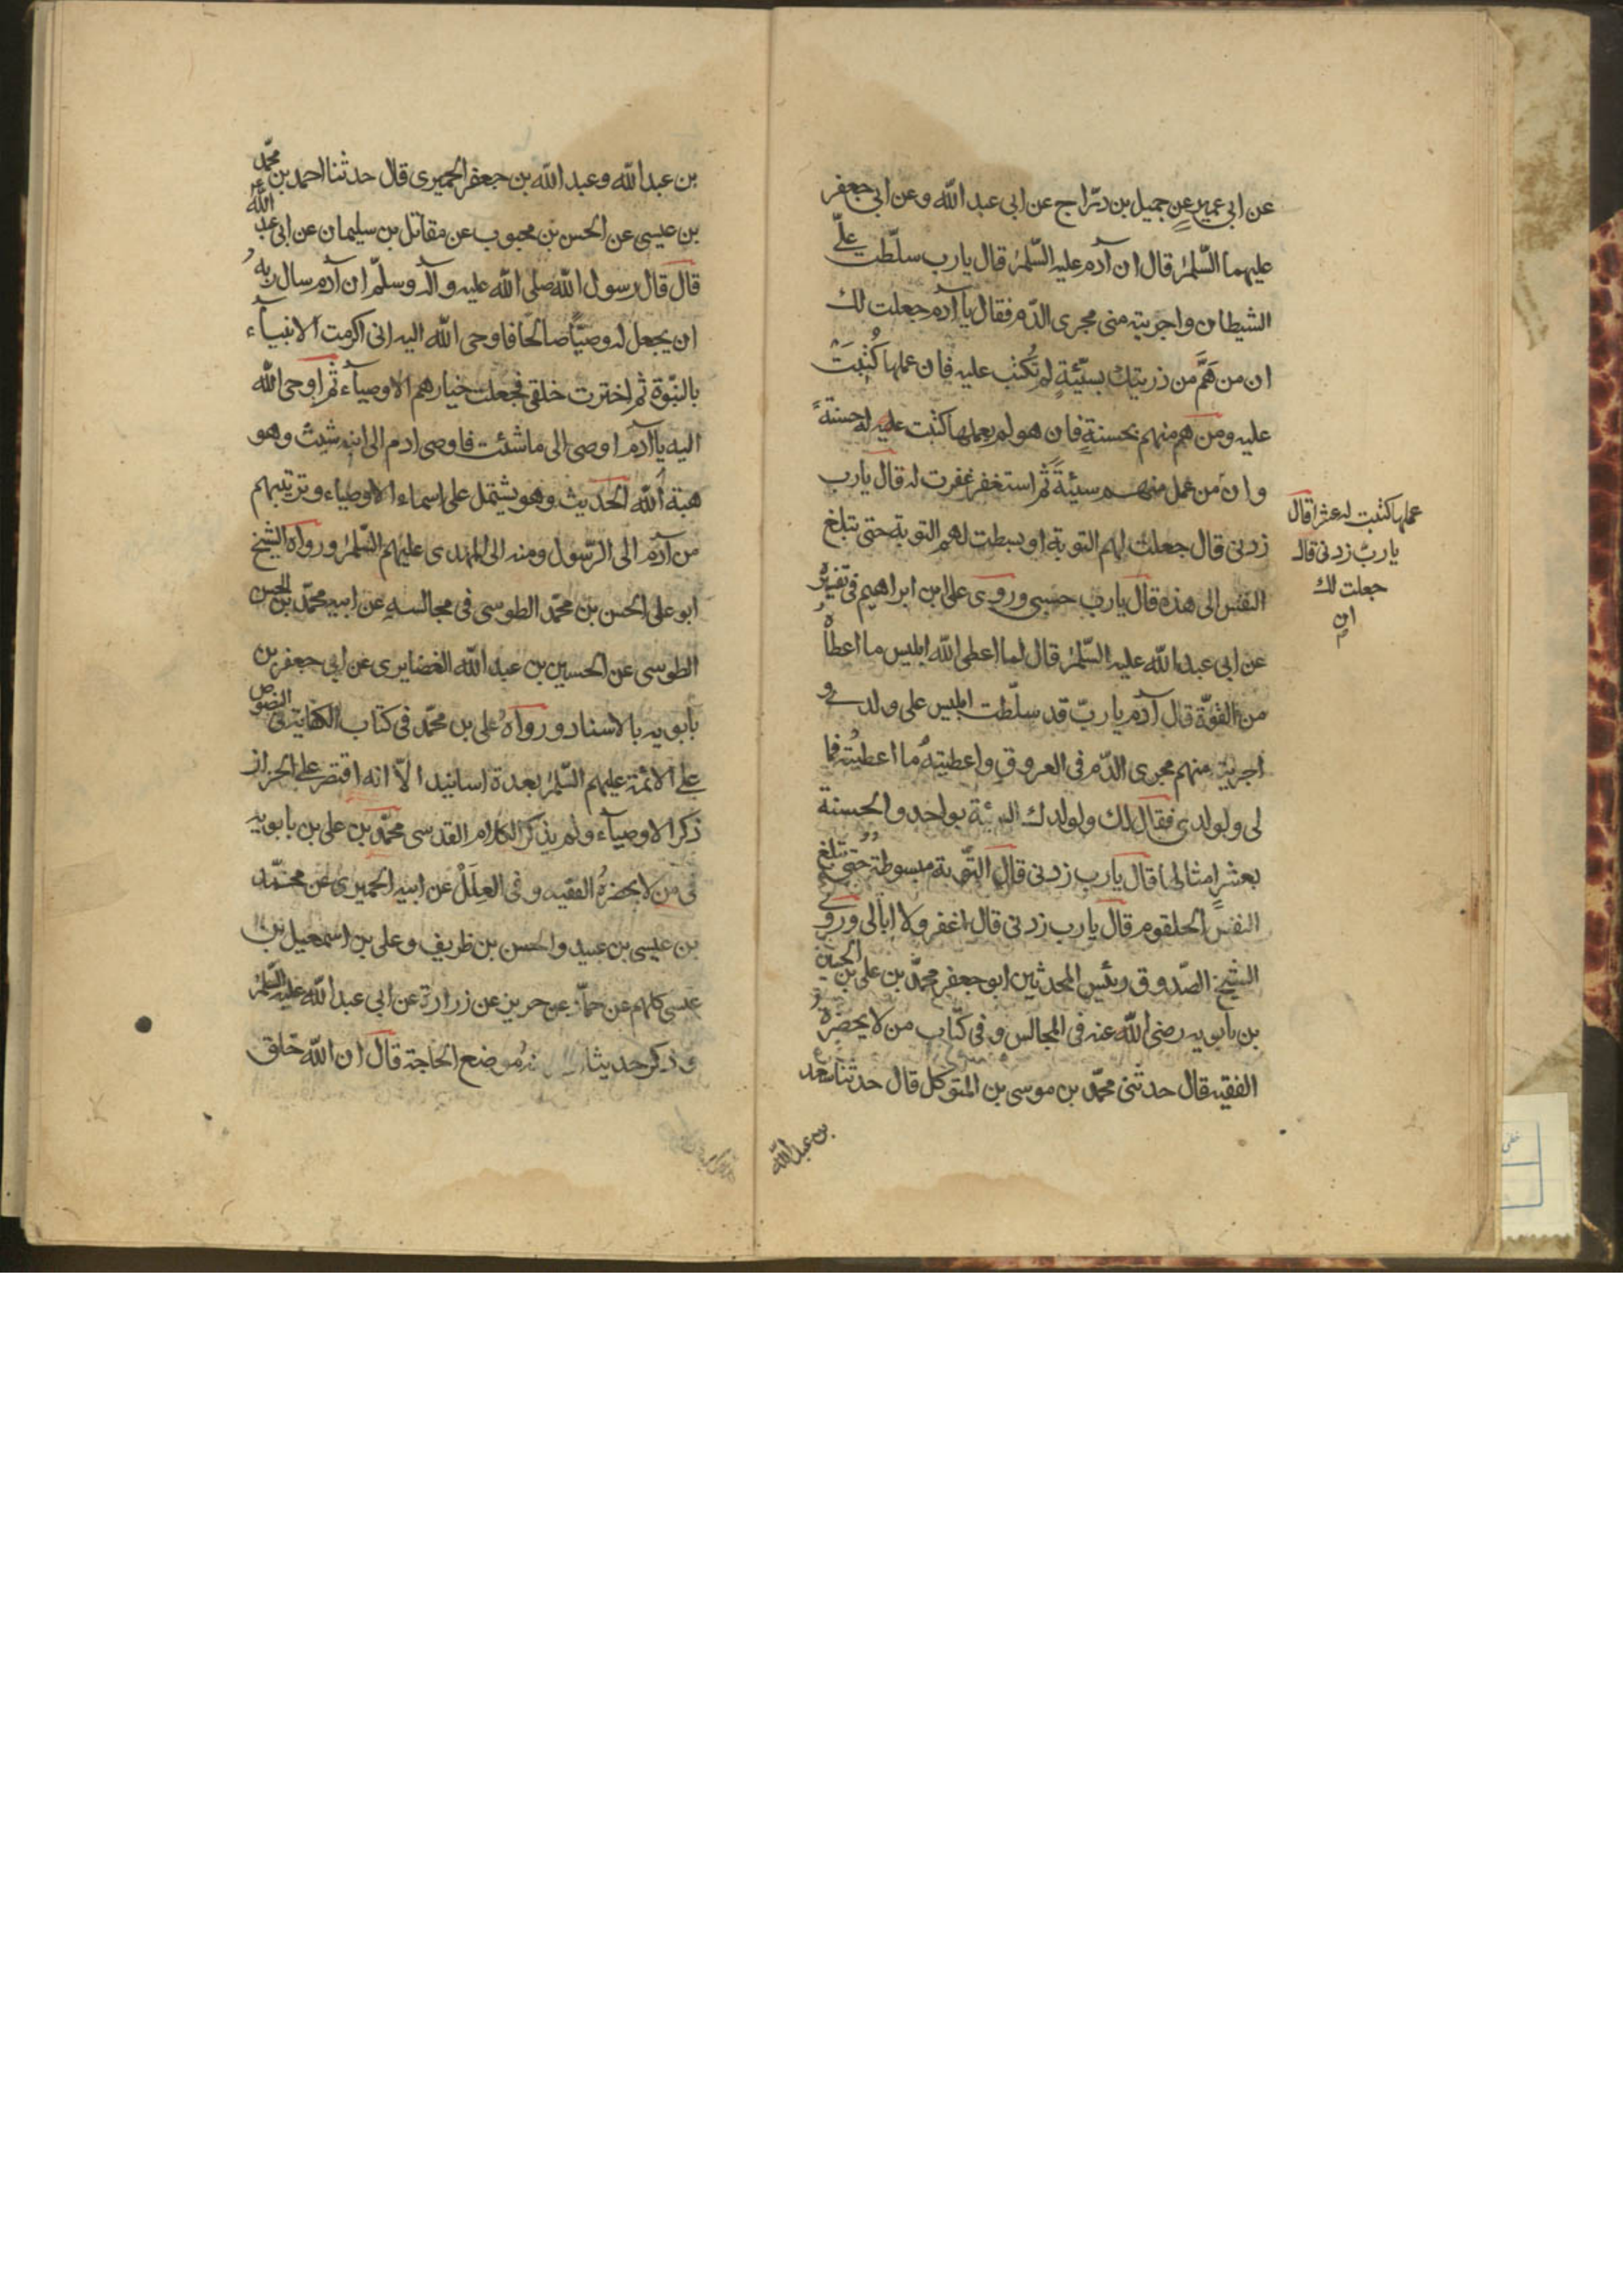 عن ابى عمير عن جميل بن درّاج عن ابى عبد الله وعن ابى جعفر
عليهما السّلم قال ان آدم عليه السّلم قال يا رب سلّطت علىّ
الشيطان واجريته منى مجرى الدّم فقال يا آدم جعلت لك
ان من هَمَّ من ذريتك بسيّئةٍ لم تُكتب عليه فان عملها كُتِبَتْ
عليه ومن هم منهم بحسنةٍ فان هو لم يعملها كتبت عليه له حسنةً
وان من عمل منهم سيئةً ثم استغفر غفرت له قال يا رب
زدنى قال جعلت لهم التوبة او بسطت لهم التوبة حتى تبلغ
النفس الى هذه قال يا رب حسبى وروى على ابن ابراهيم فى تفسيره
عن ابى عبد الله عليه السّلم قال لما اعطى الله ابليس ما اعطاهُ
من القوّة قال آدم يا ربّ قد سلّطت ابليس على ولدى و
اجريته منهم مجرى الدّم فى العروق واعطيتهُ ما اعطيتُه فما
لى ولولدى فقال لك ولولدك السيئة بواحد والحسنة
بعشرِ امثالها قال يا رب زدنى قال التّوبة مبسوطة حتى تبلغ
النفس الحلقوم قال يا رب زدنى قال اغفر ولا ابالى وروى
الشيخ الصّدوق رئيس المحدثين ابو جعفر محمّد بن على بن الحسين
بن بابويه رضى الله عنه فى المجالس وفى كتاب من لا يحضرهُ
الفقيه قال حدثنى محمّد بن موسى بن المتوكل قال حدثنا سعد
بن عبد الله
عملها كتبت له عشرا قال
يا ربّ زدنى قال
جعلت لك
ان
بن عبد الله وعبد الله بن جعفر الحميرى قال حدثنا احمد بن محمّد
بن عيسى عن الحسن بن محبوب عن مقاتل بن سليمان عن ابى عبد الله
قال قال رسول الله صلى الله عليه وآله وسلّم ان آدم سال ربهُ
ان يجعل له وصيّاً صالحا فاوحى الله اليه انى اكرمت الانبيآء
بالنبّوة ثم اخترت خلقى فجعلت خيارهم الاوصيآء ثم اوحى الله
اليه يا آدم اوصى الى ما شئت فاوصى ادم الى ابنه شيث وهو
هبة الله الحديث وهو يشتمل على اسماء الاوصياء وترتيبهم
من آدم الى الرّسول ومنه الى المهدى عليهم السّلم ورواه الشيخ
ابو على الحسن بن محمّد الطوسى فى مجالسه عن ابيه محمّد بن الحسن
الطوسى عن الحسين بن عبد الله الغضايرى عن ابى جعفر بن
بابويه بالاسناد ورواهُ على بن محمّد فى كتاب الكفاية فى النصوص
على الائمة عليهم السّلم بعدة اسانيد الاّ انه اقتصر على الخزاز
ذكر الاوصيآء ولم يذكر الكلام القدسى محمّد بن على بن بابويه
فى من لا يحضرهُ الفقيه وفى العِلَلْ عن ابيه الحميرى عن محمّد
بن عيسى بن عبيد والحسن بن ظريف وعلى بن اسمعيل بن
عيسى كلهم عن حمّاد عن حريز عن زرارة عن ابى عبد الله عليه السّلم
وذكر حديثا موضع الحاجة قال ان الله خلق